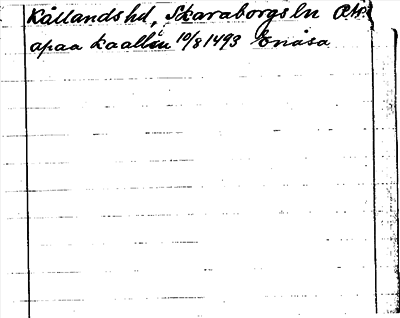 Kållandshd, Skaraborgsln
apaa kaallin 10/8 1493 Enåsa